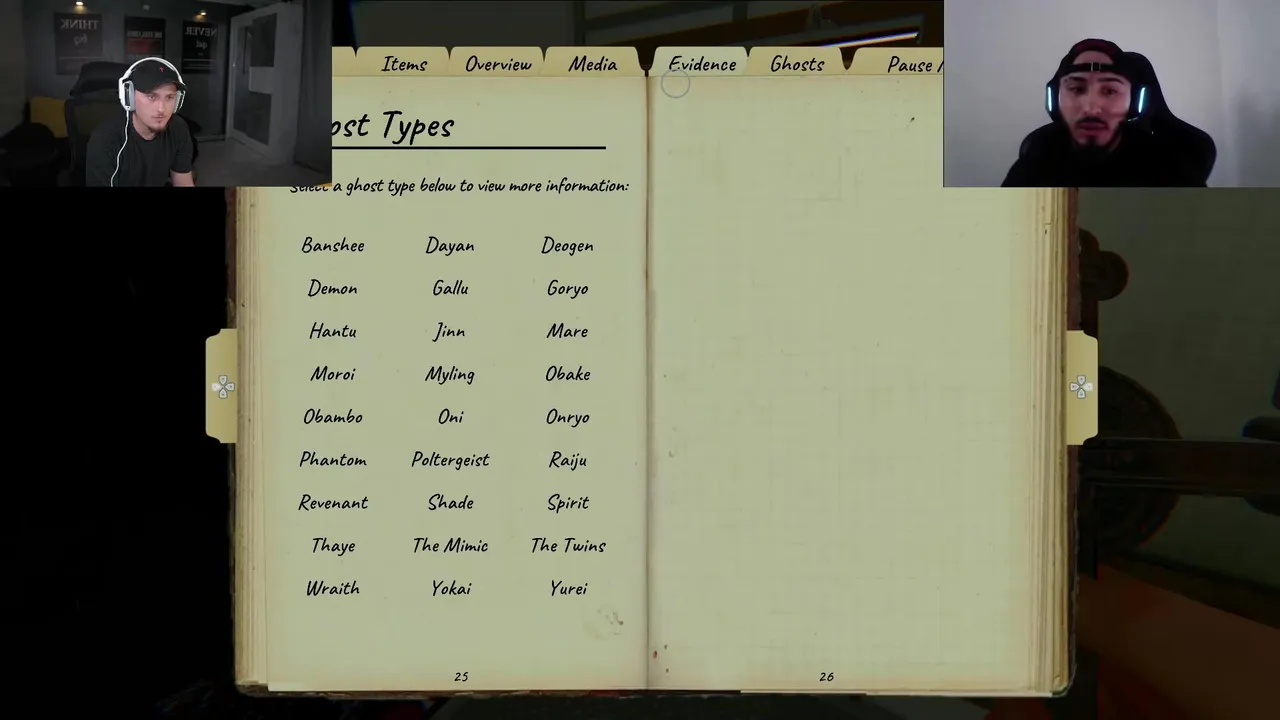 Items Overview Media Evidence Ghosts Pause /
ost Types
Select a ghost type below to view more information:
Banshee Dayan Deogen
Demon Gallu Goryo
Hantu Jinn Mare
Moroi Myling Obake
Obambo Oni Onryo
Phantom Poltergeist Raiju
Revenant Shade Spirit
Thaye The Mimic The Twins
Wraith Yokai Yurei
25 26
THINK
NEVER